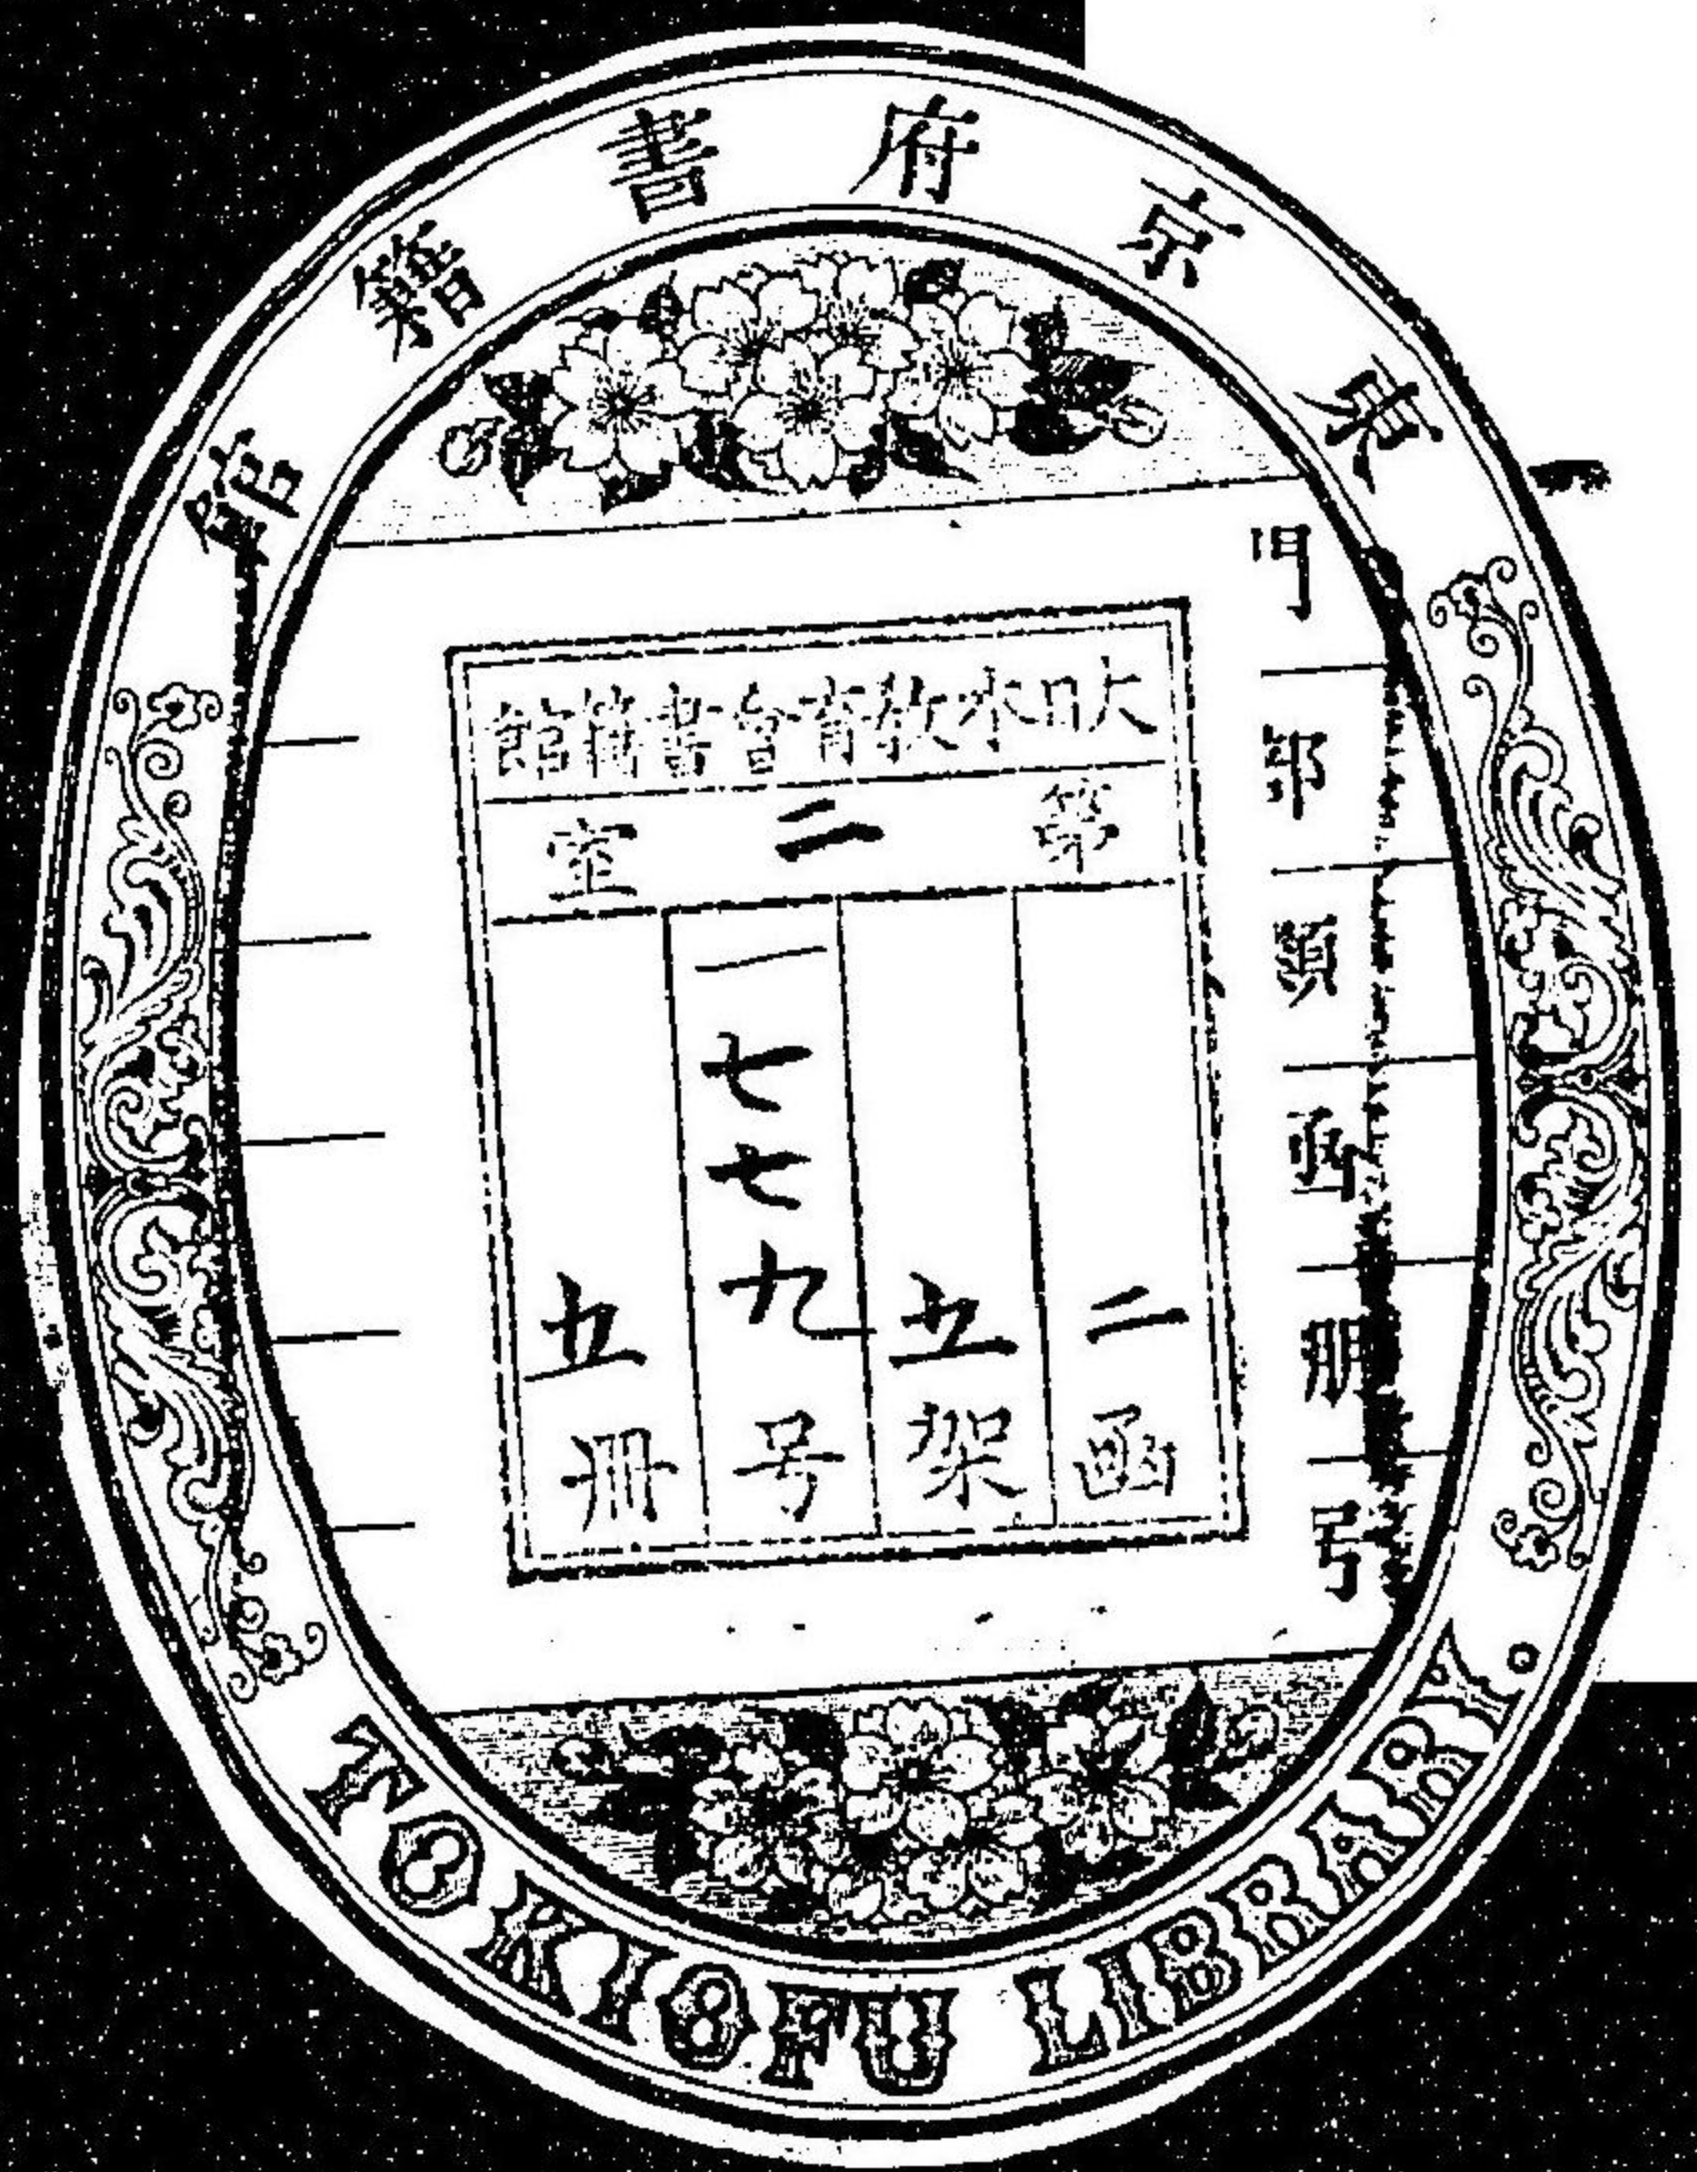 東京府書籍館
門
部
類
函
冊
号
大日本教育會書籍館
第二室
二函
五架
一七七九号
五冊
TOKIOFU LIBRARY.